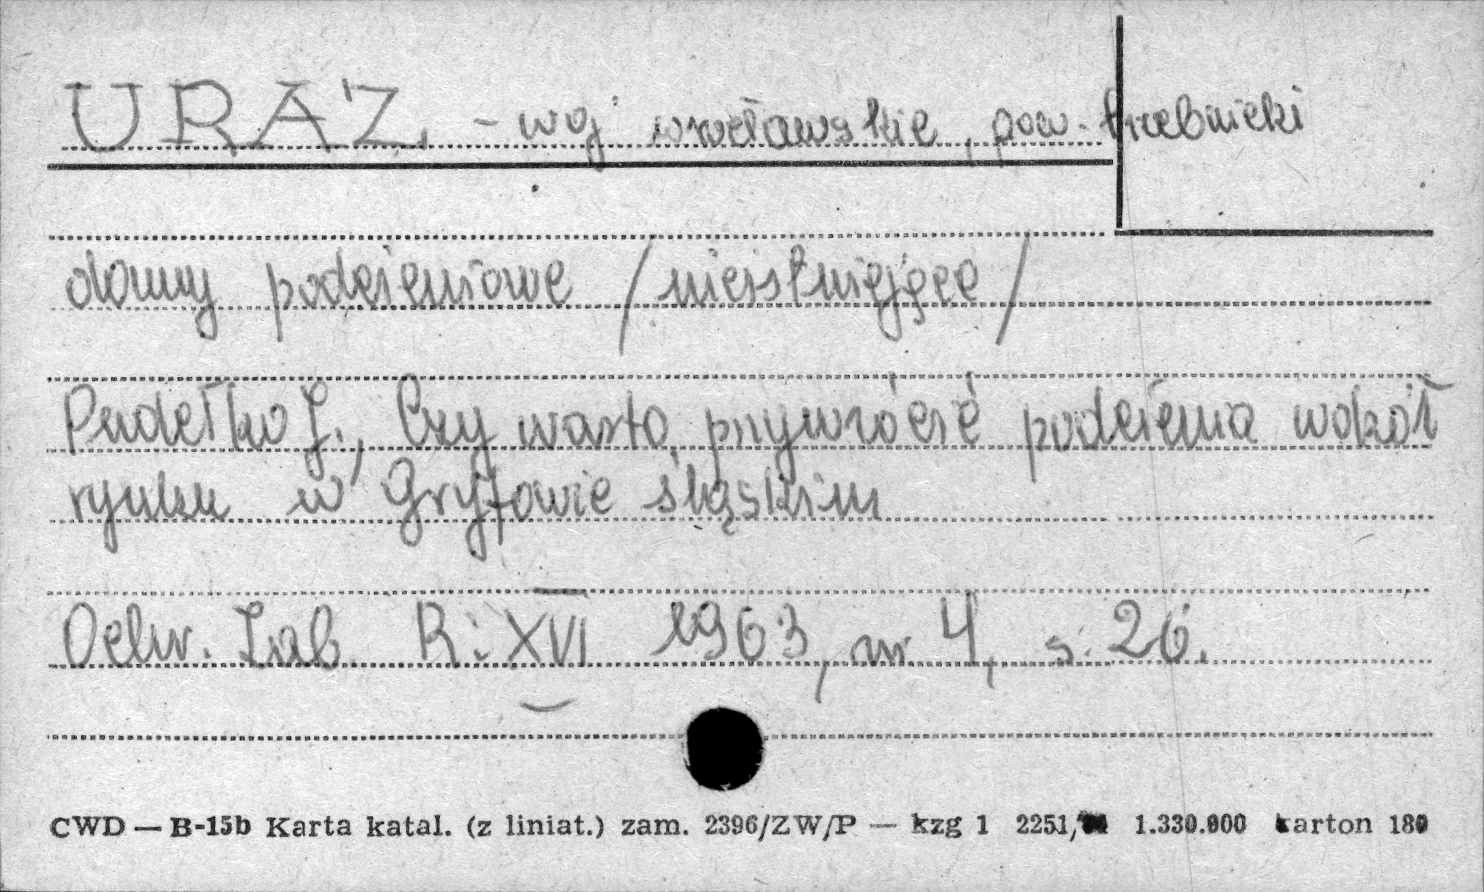 URAZ - woj wrocławskie, pow. trzebnicki
domy podcieniowe /nieistniejące/
Pudełko J., Czy warto przywrócić podcienia wokół
rynku w Gryfowie śląskim
Ochr. Zab. R. XVI 1963, nr 4, s. 26.
CWD — B-15b Karta katal. (z liniat.) zam. 2396/ZW/P — kzg 1 2251/ 1.330.000 karton 180